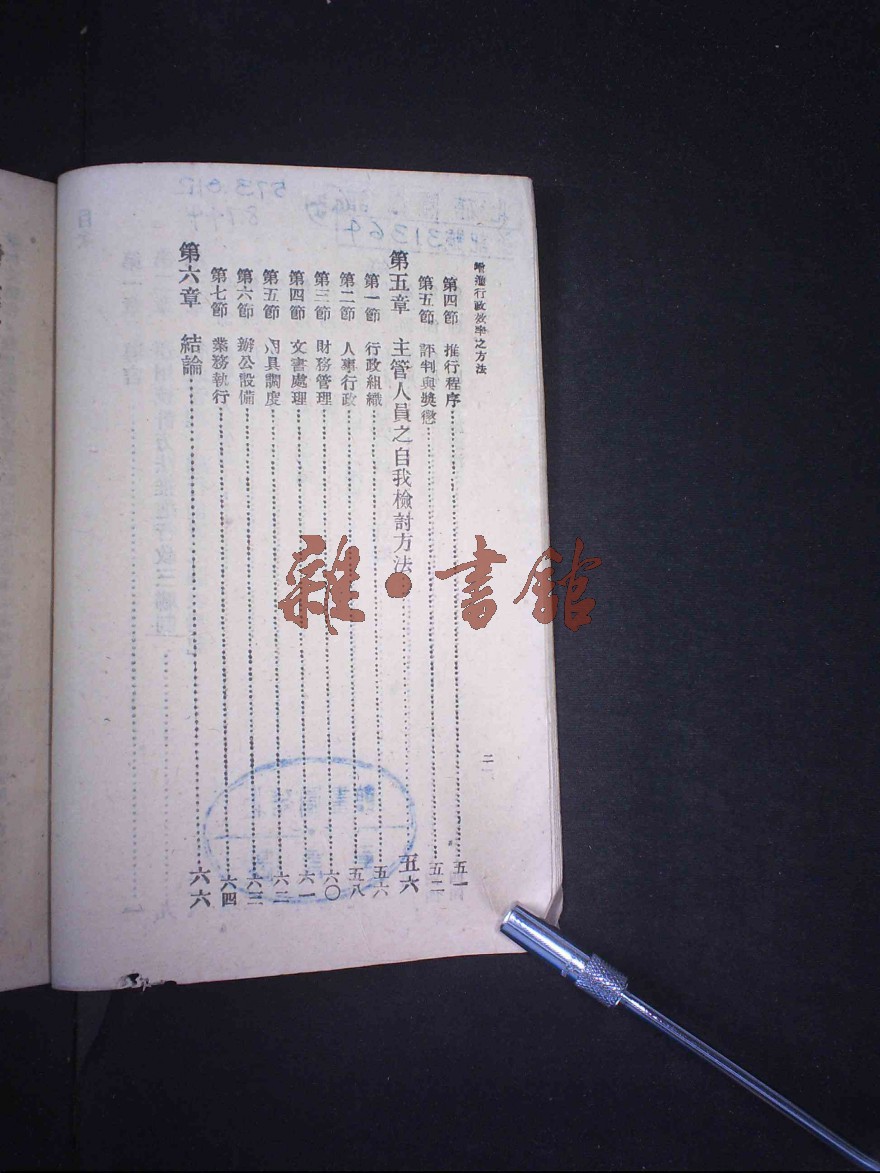 增進行政效率之方法
二
第四節 推行程序 五一
第五節 評判與獎懲 五二
第五章 主管人員之自我檢討方法 五六
第一節 行政組織 五六
第二節 人事行政 五八
第三節 財務管理 六〇
第四節 文書處理 六一
第五節 用具調度 六二
第六節 辦公設備 六三
第七節 業務執行 六四
第六章 結論 六六
雜·書館